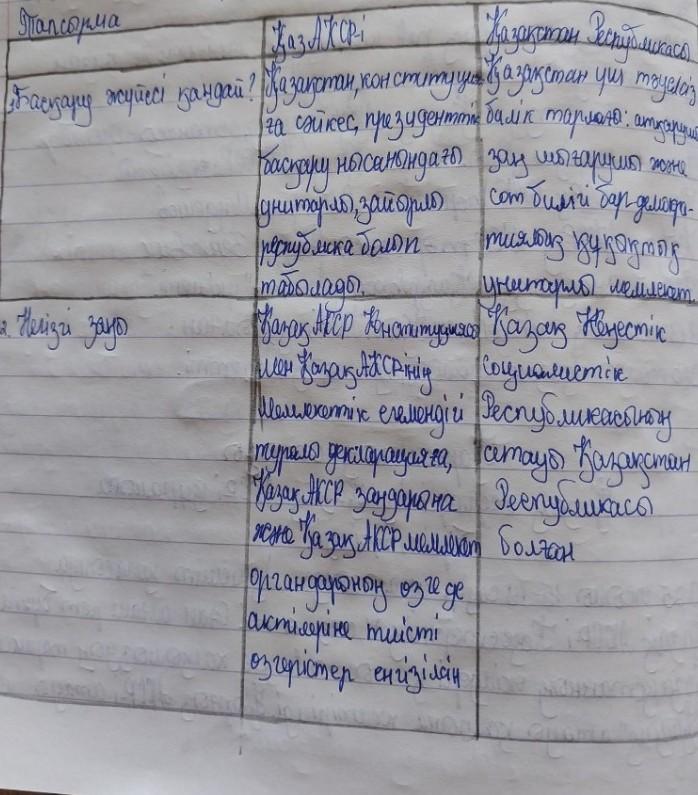 Тапсырма
ҚазАКСР-і
Қазақстан Республикасы
1. Басқару жүйесі қандай?
Қазақстан, конституция
ға сәйкес, президенттік
басқару нысанындағы
унитарлы, зайырлы
республика болып
табылады.
Қазақстан үш тәуелсіз
билік тармағы: атқарушы
заң шығарушы және
сот билігі бар-демокра-
тиялық құқықтық
унитарлы мемлекет.
2. Негізгі заңы
Қазақ АКСР Конституциясы
мен Қазақ АКСР-інің
Мемлекеттік егемендігі
туралы декларацияға,
Қазақ АКСР заңдарына
және Қазақ АКСР мемлекет
органдарының өзге де
актілеріне тиісті
өзгерістер енгізілін
Қазақ Кеңестік
социалистік
Республикасының
атауы Қазақстан
Республикасы
болған